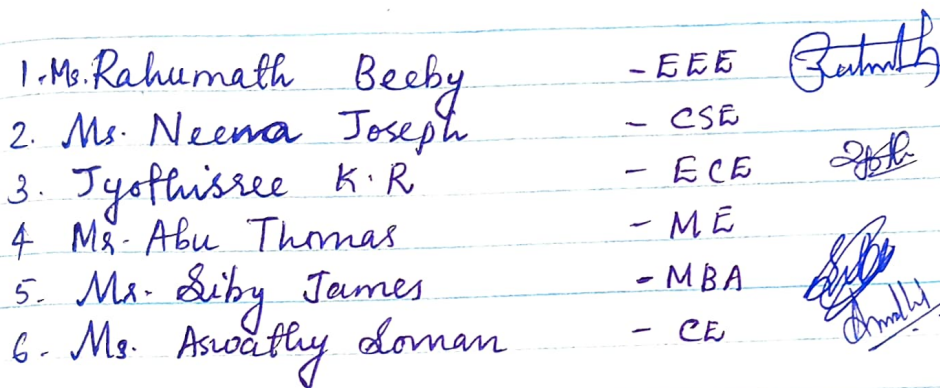 1. Ms. Rahumath Beeby - EEE
2. Ms. Neema Joseph - CSE
3. Jyothissree K.R - ECE
4 Mr. Abu Thomas - ME
5. Mr. Siby James - MBA
6. Ms. Aswathy Soman - CE